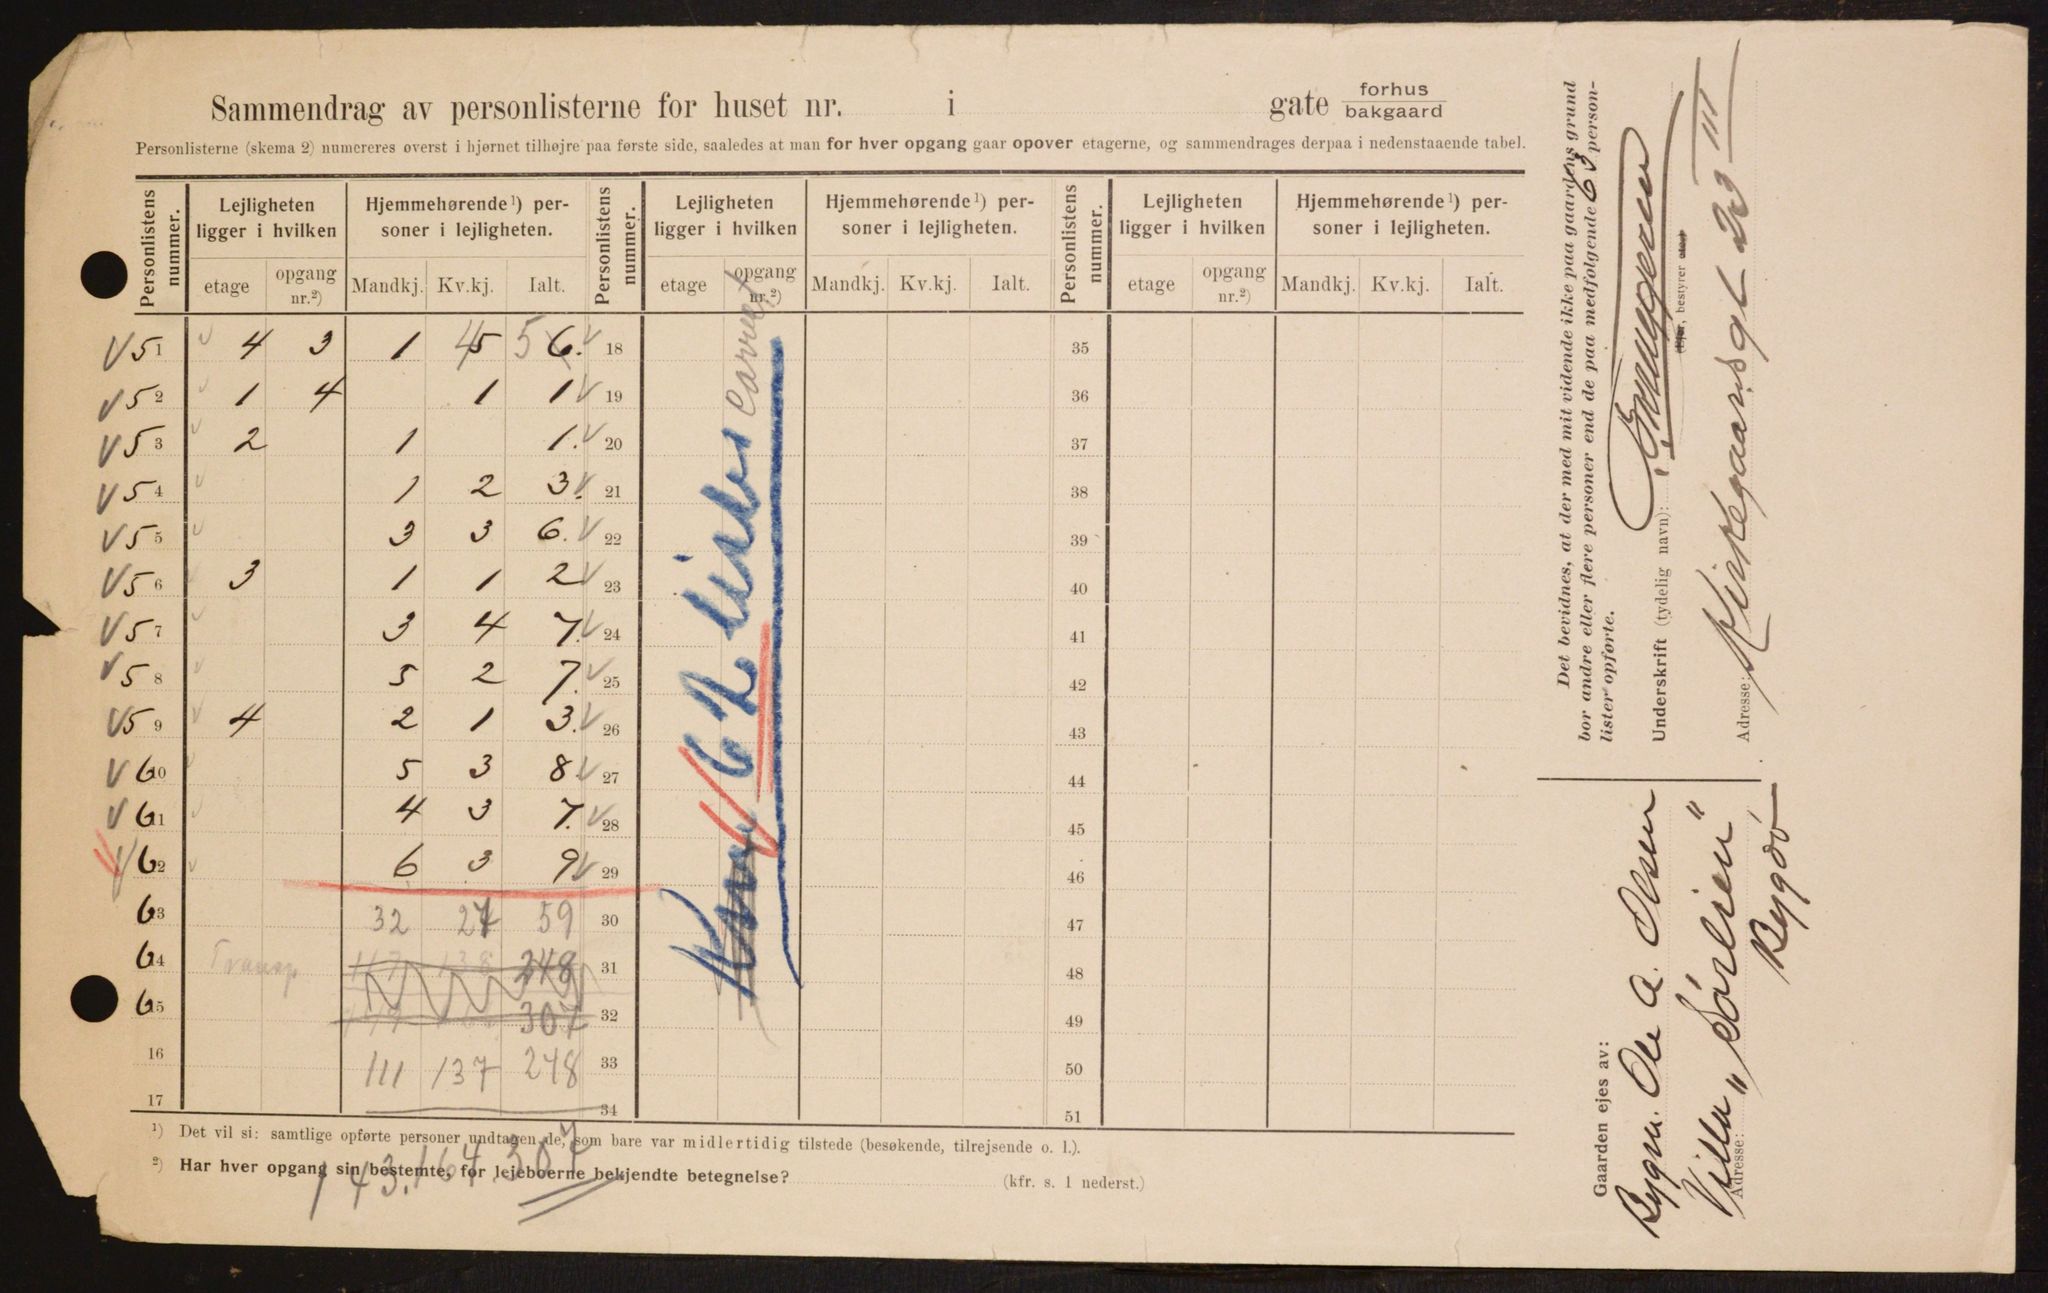 Sammendrag av personlisterne for huset nr. i gate forhus bakgaard
Personlisterne (skema 2) numereres øverst i hjørnet tilhøjre paa første side, saaledes at man for hver opgang gaar opover etagerne, og sammendrages derpaa i nedenstaaende tabel.
Personlistens nummer. Lejligheten ligger i hvilken Hjemmehørende¹) personer i lejligheten. Personlistens nummer. Lejligheten ligger i hvilken Hjemmehørende¹) personer i lejligheten. Personlistens nummer. Lejligheten ligger i hvilken Hjemmehørende¹) personer i lejligheten.
etage opgang nr.²) Mandkj. Kv.kj. Ialt. etage opgang nr.²) Mandkj. Kv.kj. Ialt. etage opgang nr.²) Mandkj. Kv.kj. Ialt.
V 51 4 3 1 4 5 5 6. 18 35
V 52 1 4 1 1 19 36
V 53 2 1 1. 20 37
V 54 1 2 3. 21 38
V 55 3 3 6. 22 39
V 56 3 1 1 2 23 40
V 57 3 4 7. 24 41
V 58 5 2 7. 25 42
V 59 4 2 1 3. 26 43
V 60 5 3 8. 27 44
V 61 4 3 7. 28 45
V 62 6 3 9 29 46
63 32 27 59 30 47
64 Transp 117 138 248 31 48
65 307 32 49
16 111 137 248 33 50
17 34 51
62 Lister
¹) Det vil si: samtlige opførte personer undtagen de, som bare var midlertidig tilstede (besøkende, tilrejsende o. l.).
²) Har hver opgang sin bestemte, for lejeboerne bekjendte betegnelse? (kfr. s. 1 nederst.)
143. 164. 307
Det bevidnes, at der med mit vidende ikke paa gaardens grund
bor andre eller flere personer end de paa medfølgende 63 person-
lister opførte.
Underskrift (tydelig navn):
(Ejer, bestyrer etc.)
Adresse: Kirkegaardsgt 23 III
Gaarden ejes av:
Bygm. Ole A. Olsen
Villa „Sörlien"
Adresse: Bygdö